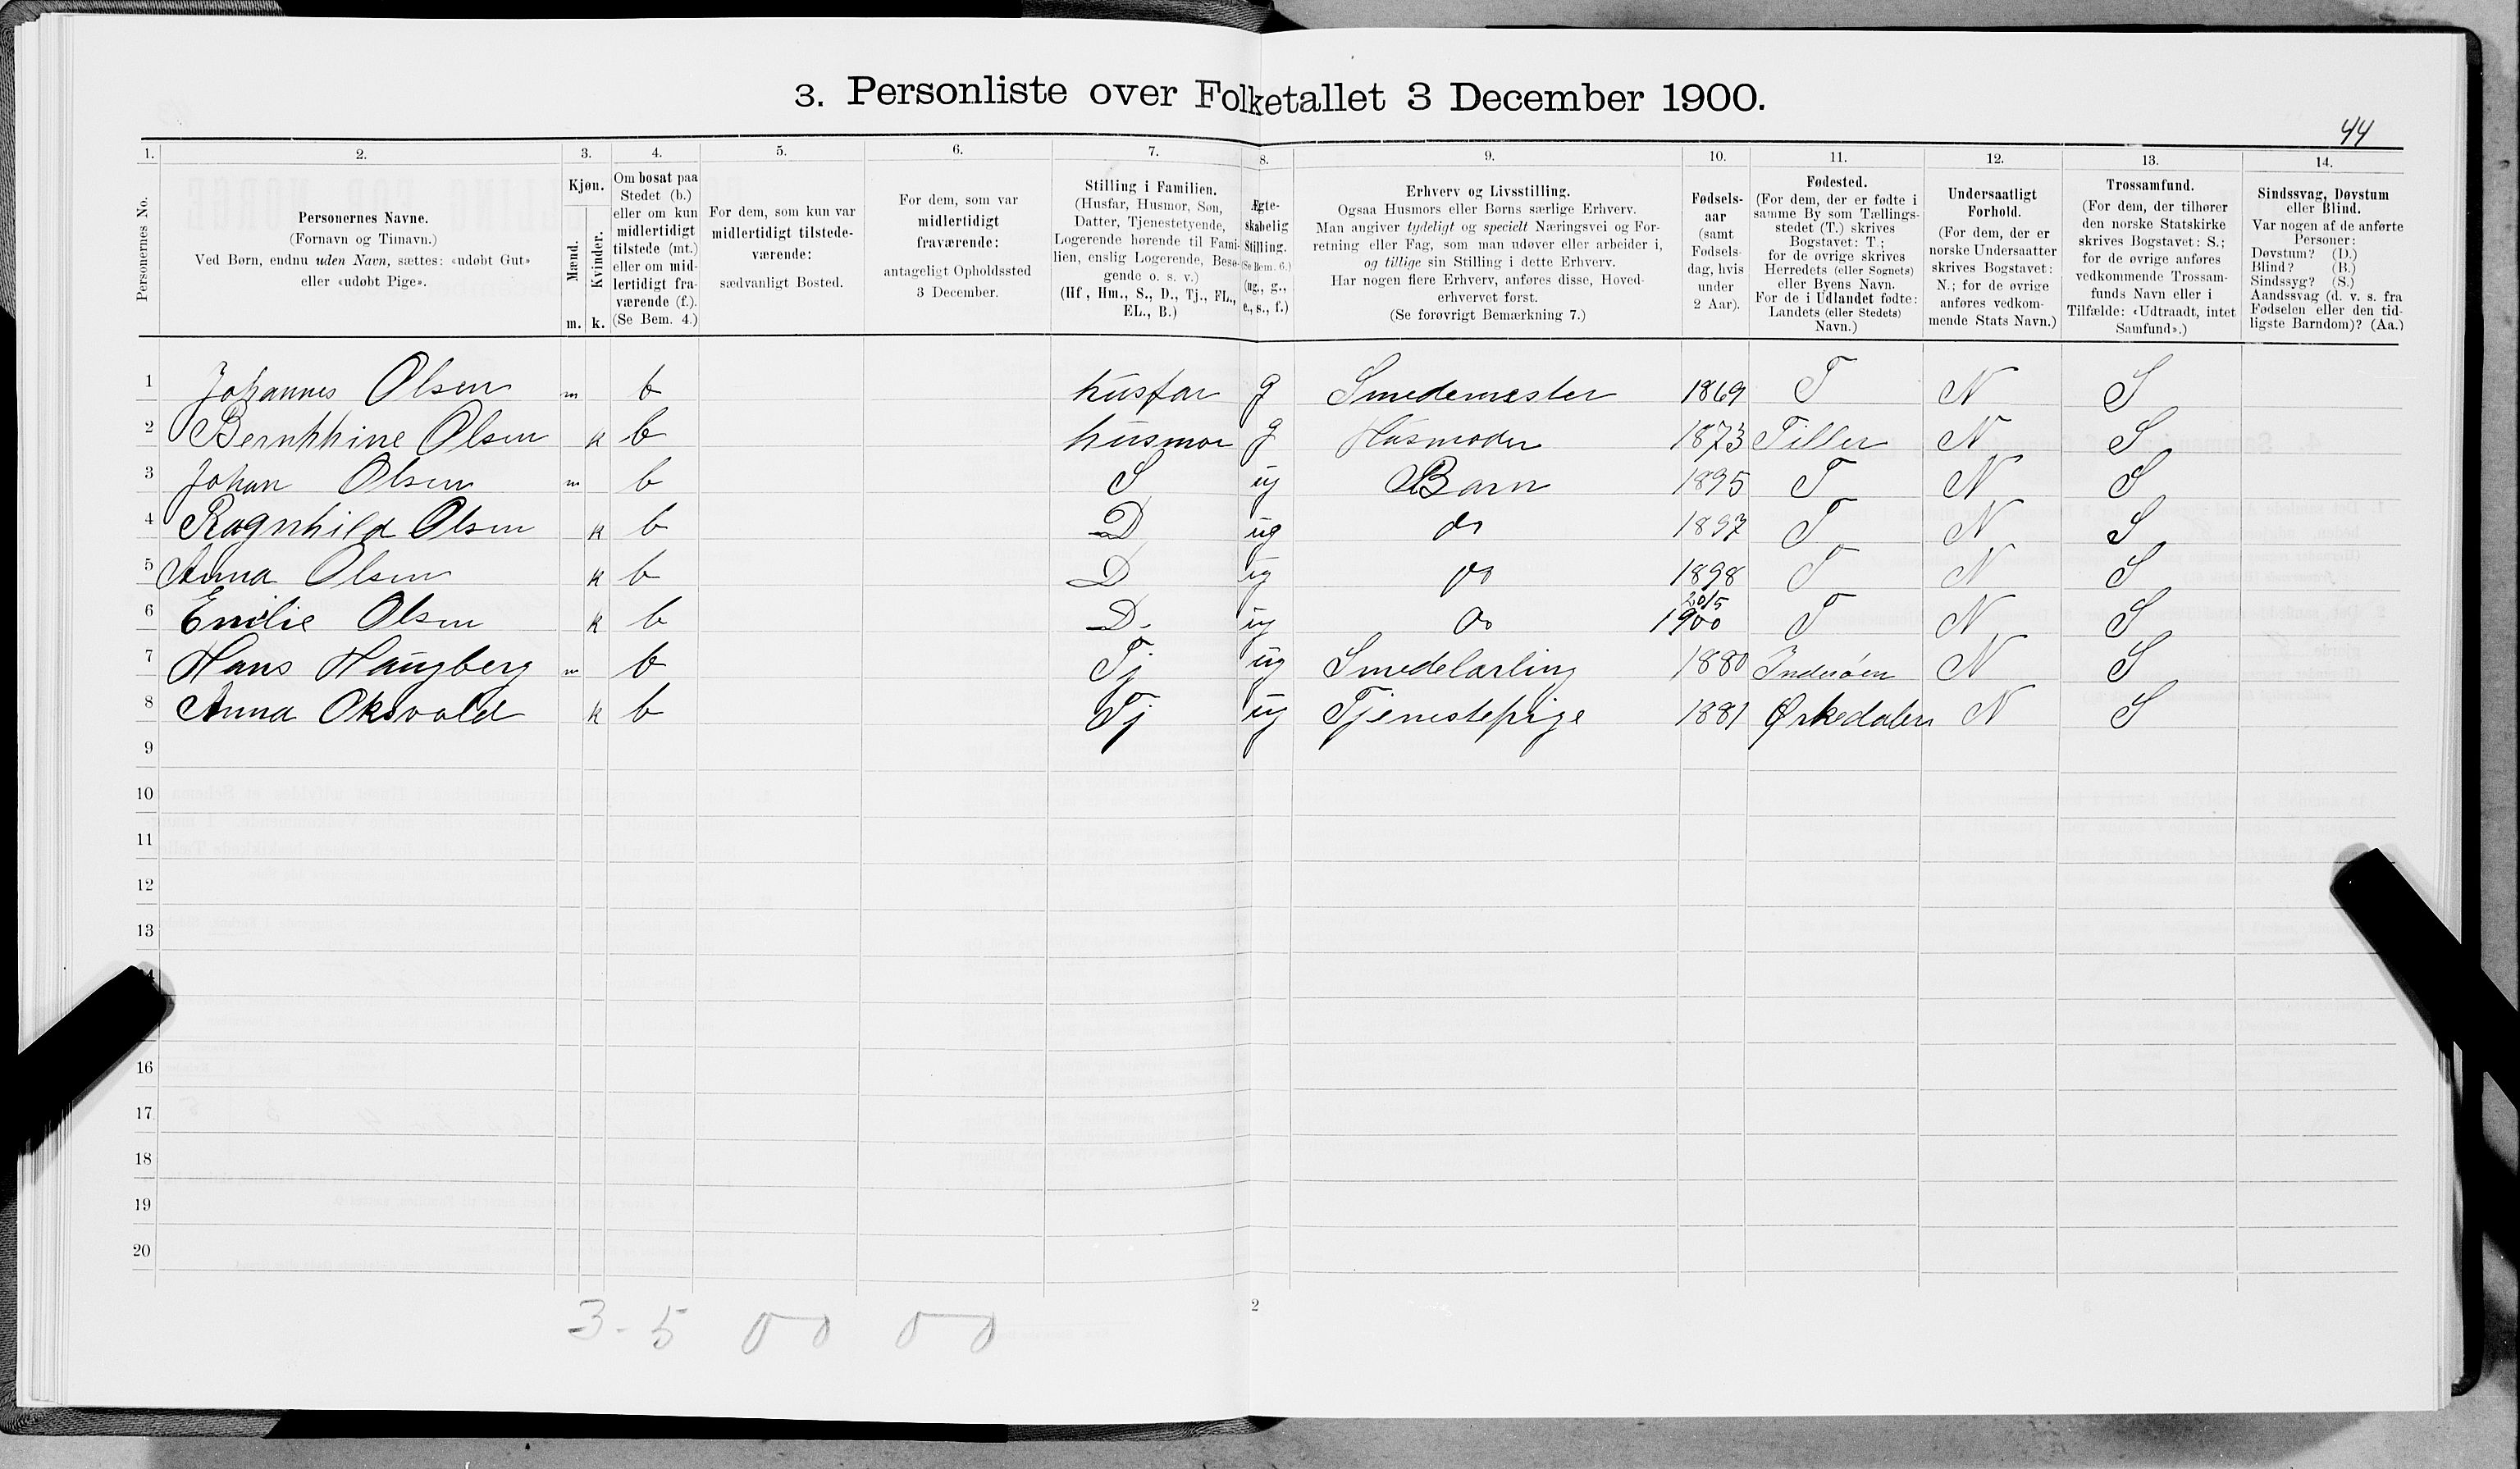 3. Personliste over Folketallet 3 December 1900.
44
1. 2. 3. 4. 5. 6. 7. 8. 9. 10. 11. 12. 13. 14.
Personernes No.
Personernes Navne.
(Fornavn og Tilnavn.)
Ved Børn, endnu uden Navn, sættes: «udøbt Gut»
eller «udøbt Pige».
Kjøn.
Mænd. Kvinder.
m. k.
Om bosat paa
Stedet (b.)
eller om kun
midlertidigt
tilstede (mt.)
eller om mid-
lertidigt fra-
værende (f.).
(Se Bem. 4.)
For dem, som kun var
midlertidigt tilstede-
værende:
sædvanligt Bosted.
For dem, som var
midlertidigt
fraværende:
antageligt Opholdssted
3 December.
Stilling i Familien.
(Husfar, Husmor, Søn,
Datter, Tjenestetyende,
Logerende hørende til Fami-
lien, enslig Logerende, Besø-
gende o. s. v.)
(Hf., Hm., S., D., Tj., FL.,
EL., B.)
Ægte-
skabelig
Stilling.
(Se Bem. 6.)
(ug., g.,
e., s., f.)
Erhverv og Livsstilling.
Ogsaa Husmors eller Børns særlige Erhverv.
Man angiver tydeligt og specielt Næringsvei og For-
retning eller Fag, som man udøver eller arbeider i,
og tillige sin Stilling i dette Erhverv.
Har nogen flere Erhverv, anføres disse, Hoved-
erhvervet først.
(Se forøvrigt Bemærkning 7.)
Fødsels-
aar
(samt
Fødsels-
dag, hvis
under
2 Aar).
Fødested.
(For dem, der er fødte i
samme By som Tællings-
stedet (T.) skrives
Bogstavet: T.;
for de øvrige skrives
Herredets (eller Sognets)
eller Byens Navn.
For de i Udlandet fødte:
Landets (eller Stedets)
Navn.)
Undersaatligt
Forhold.
(For dem, der er
norske Undersaatter
skrives Bogstavet:
N.; for de øvrige
anføres vedkom-
mende Stats Navn.)
Trossamfund.
(For dem, der tilhører
den norske Statskirke
skrives Bogstavet: S.;
for de øvrige anføres
vedkommende Trossam-
funds Navn eller i
Tilfælde: «Udtraadt, intet
Samfund».)
Sindssvag, Døvstum
eller Blind.
Var nogen af de anførte
Personer:
Døvstum? (D.)
Blind? (B.)
Sindssyg? (S.)
Aandssvag (d. v. s. fra
Fødselen eller den tid-
ligste Barndom)? (Aa.)
1 Johannes Olsen m b husfar g Smedemester 1869 T N S
2 Olsen k b husmor g Husmoder 1873 Tiller N S
3 Johan Olsen m b S ug Barn 1895 T N S
4 Ragnhild Olsen k b D ug do 1897 T N S
5 Anna Olsen k b D ug do 1898 T N S
6 Emilie Olsen k b D. ug do 20/5 1900 T N S
7 Hans Haugberg m b Tj ug Smedelærling 1880 Inderøen N S
8 Anna Oksvold k b Tj ug Tjenestepige 1881 Ørkedalen N S
9
10
11
12
13
16
17
18
19
20
3 - 5 0 0 0 0
2